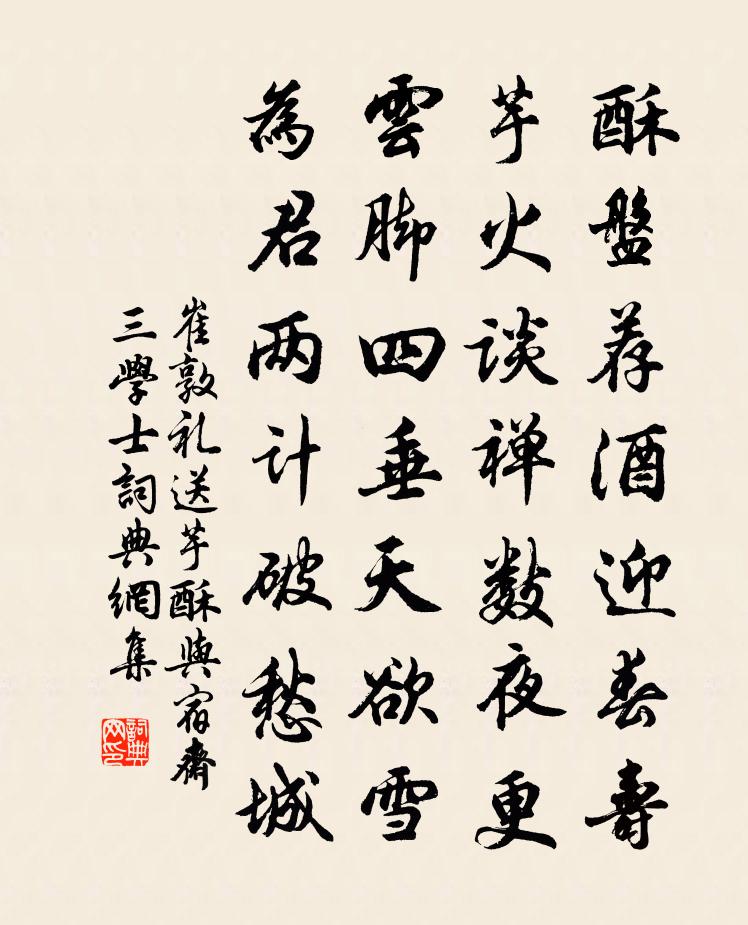 酥盤荐酒迎春壽
芋火谈禅数夜更
雲脚四垂天欲雪
為君两计破愁城
崔敦礼送芋酥與宿齋
三學士詞典網集
詞典网印